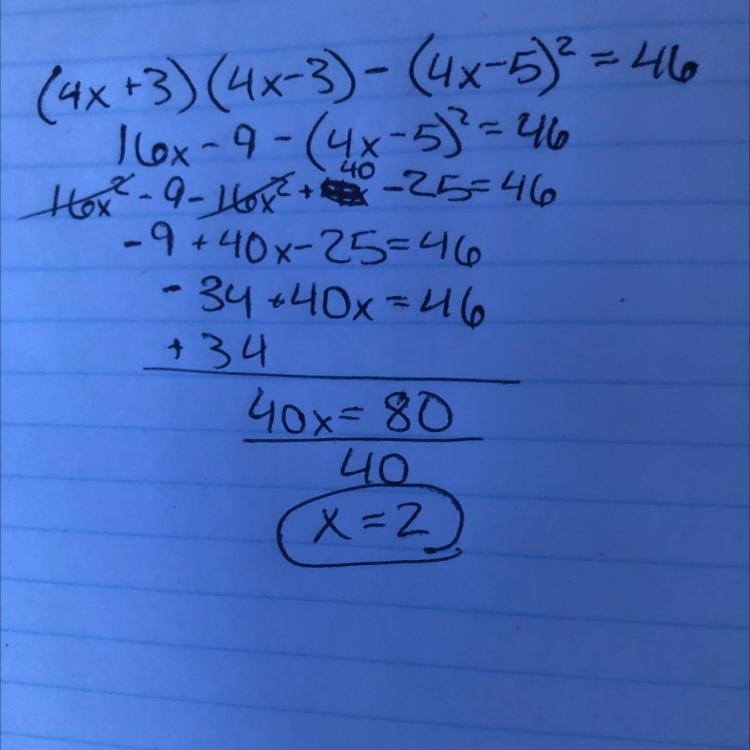 (4x+3)(4x-3)-(4x-5)²=46
16x-9-(4x-5)²=46
16x²-9-16x²+40x-25=46
-9+40x-25=46
-34+40x=46
+34
40x=80
40
x=2